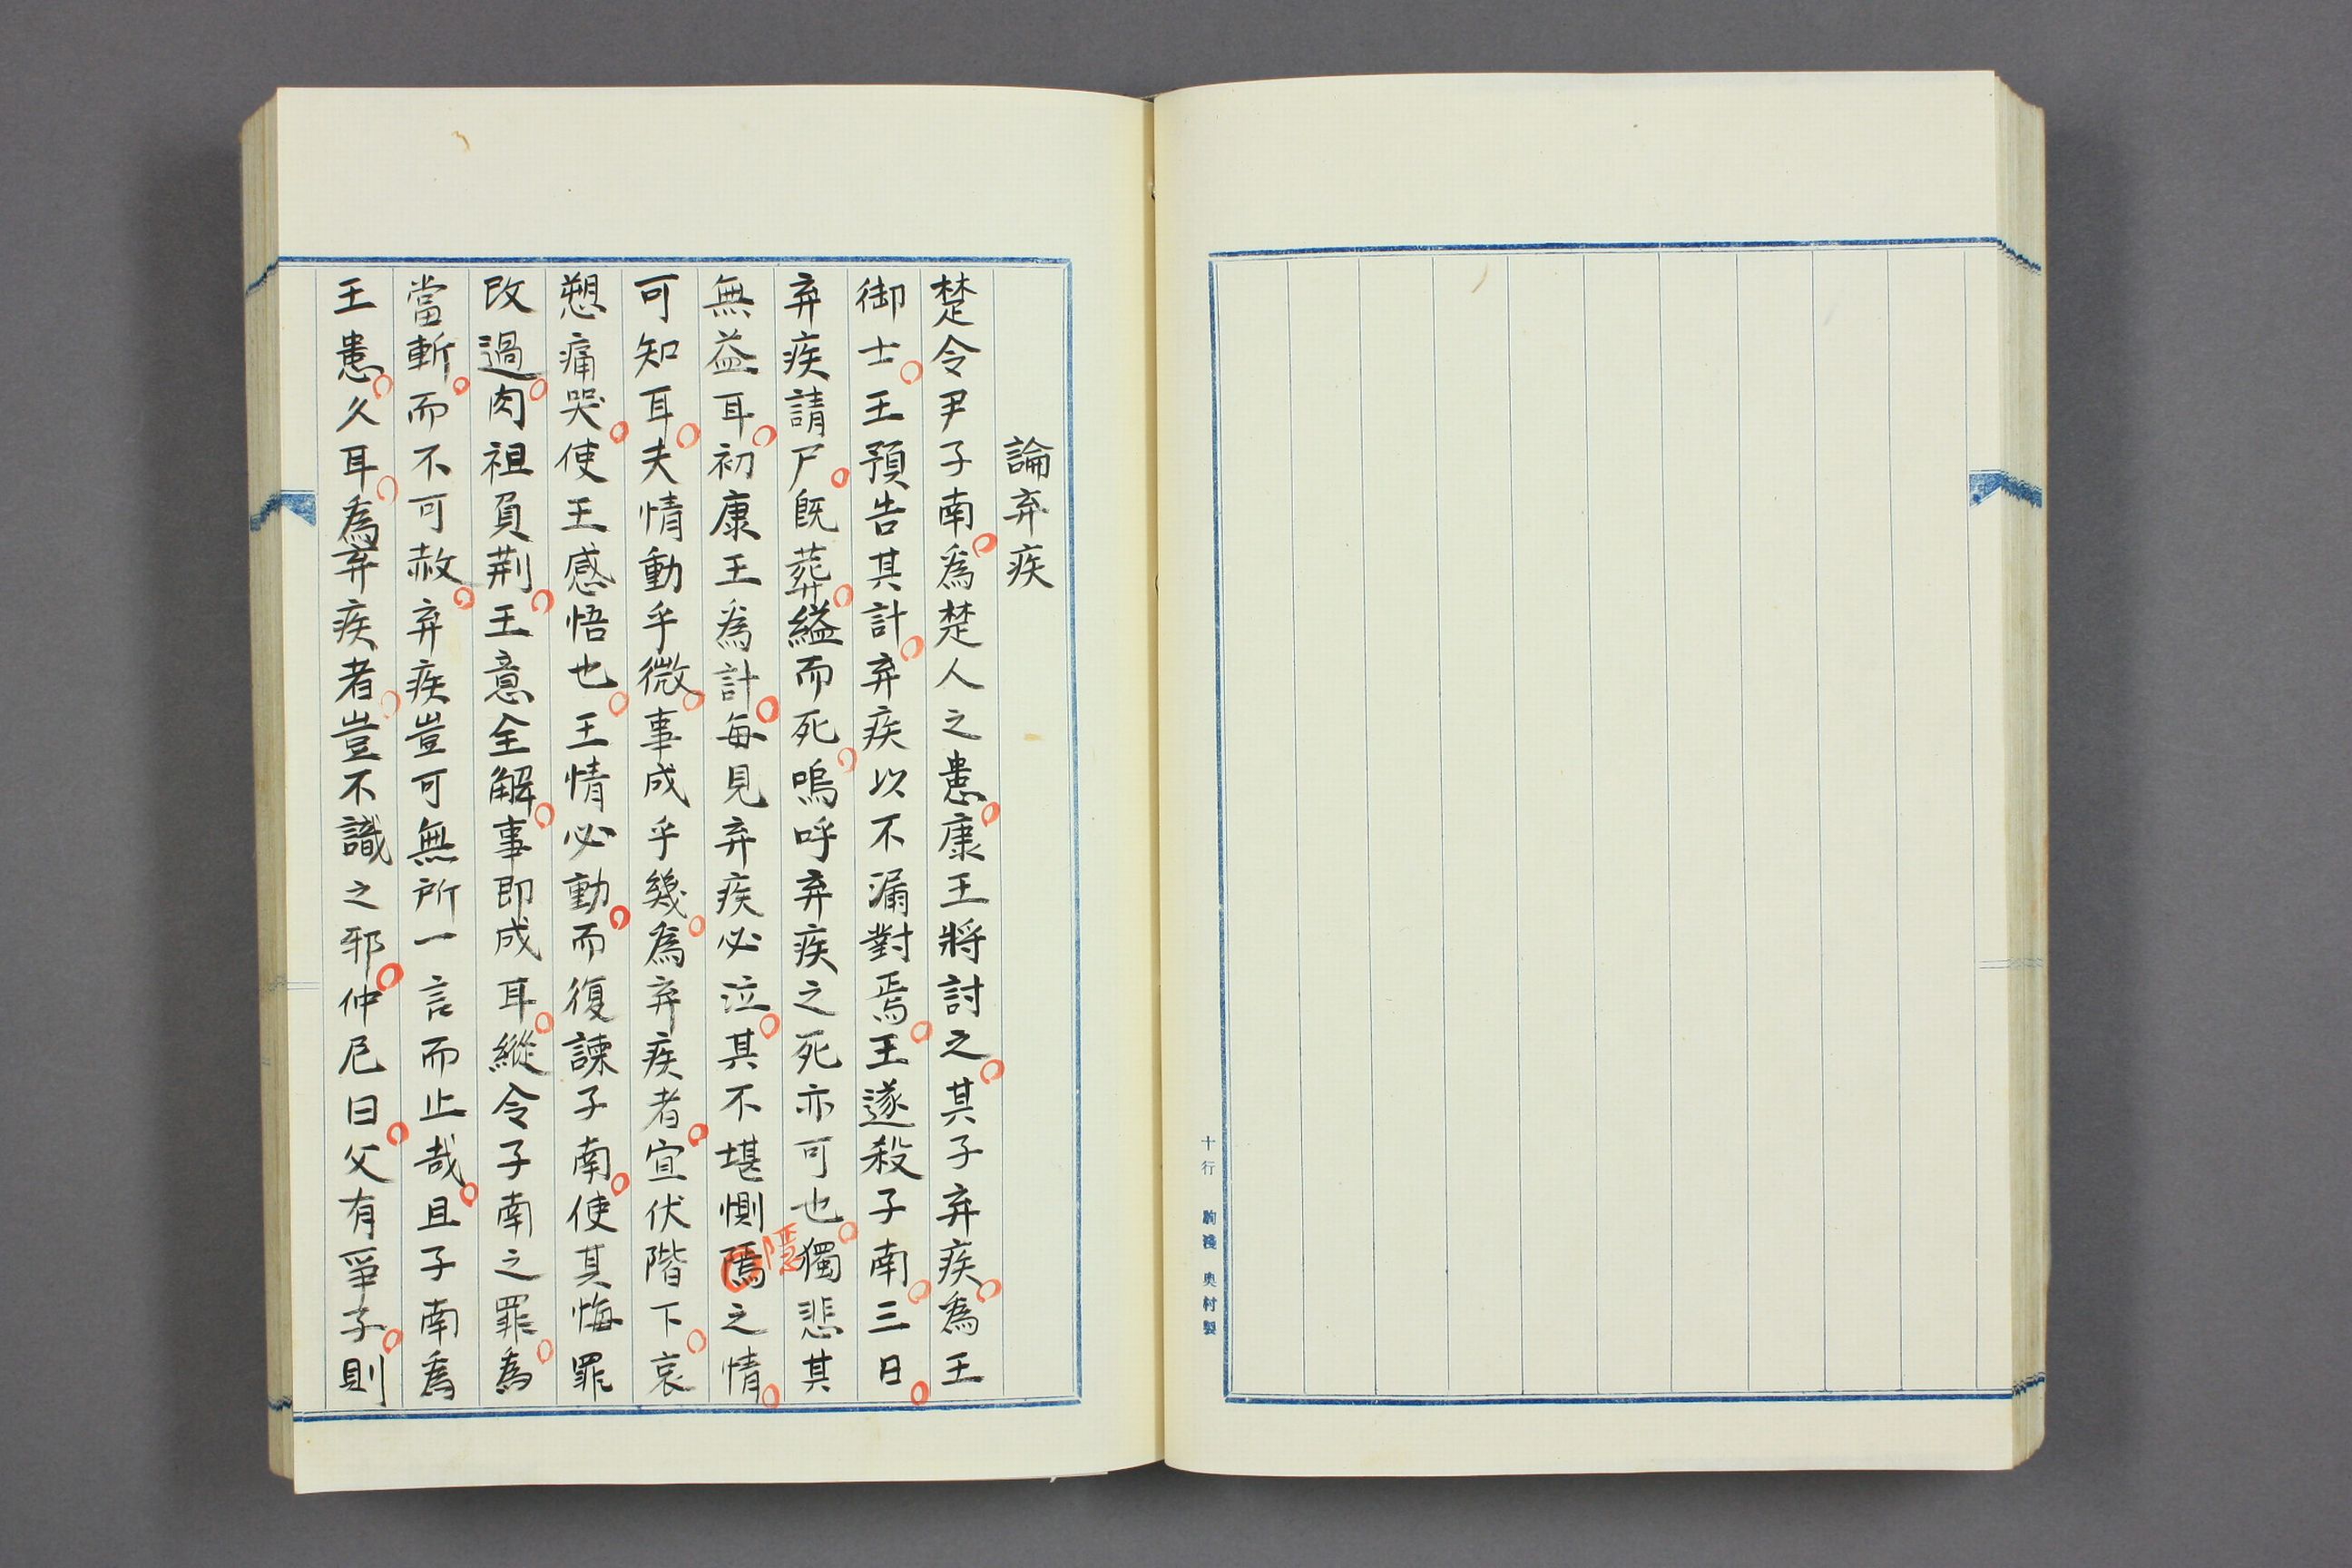 論弃疾
楚令尹子南爲楚人之患康王將討之其子弃疾爲王
御士王預告其計弃疾以不漏對焉王遂殺子南三日
弃疾請尸既葬縊而死嗚呼弃疾之死亦可也獨悲其
無益耳初康王爲計每見弃疾必泣其不堪惻焉之情
隱
可知耳夫情動乎微事成乎幾爲弃疾者宜伏階下哀
愬痛哭使王感悟也王情必動而復諫子南使其悔罪
改過肉袒負荆王意全解事即成耳縱令子南之罪爲
當斬而不可赦弃疾豈可無所一言而止哉且子南爲
王患久耳爲弃疾者豈不識之邪仲尼曰父有爭子則
十行 駒淺 奥村製